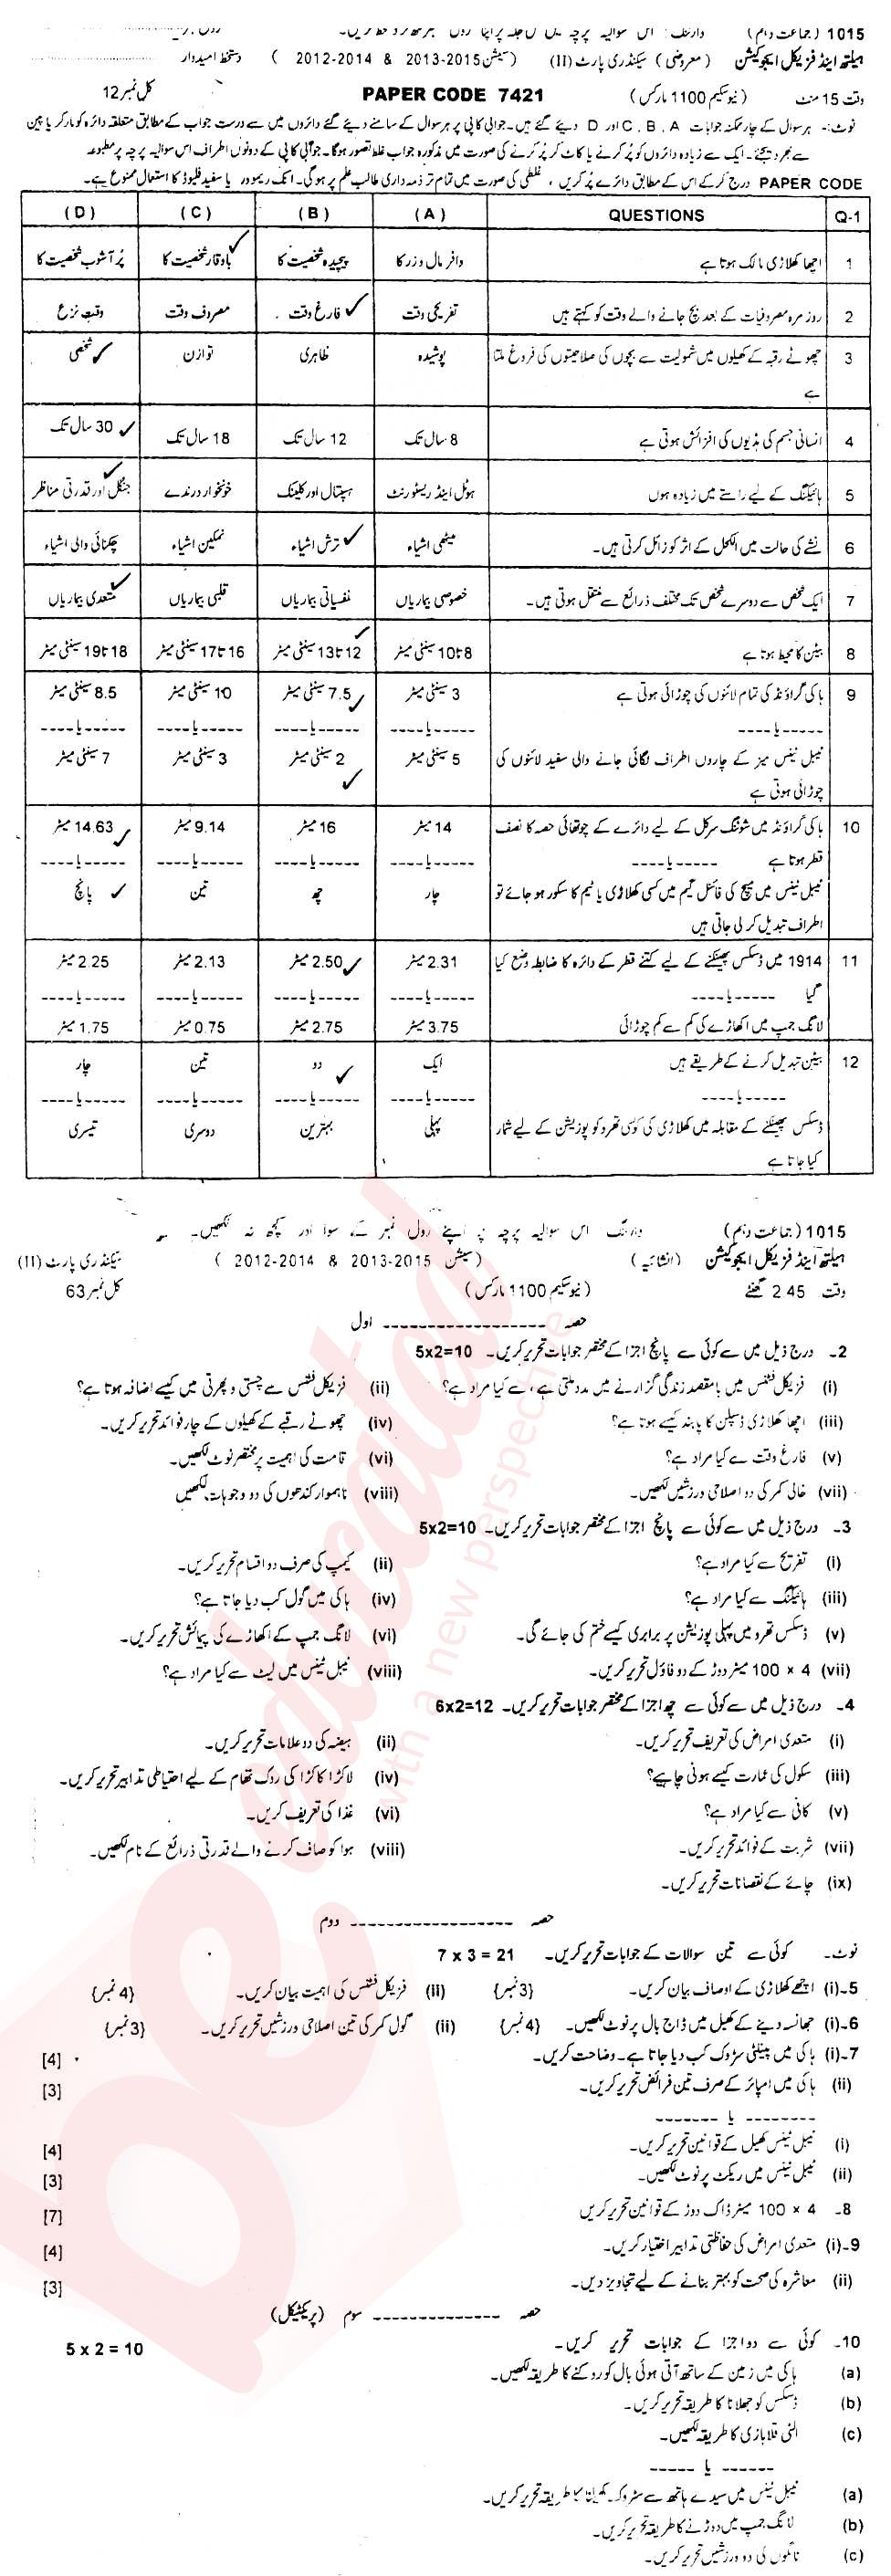 1015 (جماعت دہم) وارننگ: اس سوالیہ پرچہ
ہیلتھ اینڈ فزیکل ایجوکیشن (معروضی) سیکنڈری پارٹ (II) (سیشن 2013-2015 & 2012-2014) دستخط امیدوار
وقت 15 منٹ (نیو سکیم 1100 مارکس) PAPER CODE 7421 کل نمبر 12
نوٹ:- ہر سوال کے چار ممکنہ جوابات A ، B ، C اور D دیئے گئے ہیں۔ جوابی کاپی پر ہر سوال کے سامنے دیئے گئے دائروں میں سے درست جواب کے مطابق متعلقہ دائرہ کو مارکر یا پین
سے بھر دیجئے۔ ایک سے زیادہ دائروں کو پُر کرنے یا کاٹ کر پُر کرنے کی صورت میں مذکورہ جواب غلط تصور ہوگا۔ جوابی کاپی کے دونوں اطراف اس سوالیہ پرچہ پر مطبوعہ
PAPER CODE درج کر کے اس کے مطابق دائرے پُر کریں ، غلطی کی صورت میں تمام تر ذمہ داری طالب علم پر ہوگی۔ انک ریموور یا سفید فلیوڈ کا استعمال ممنوع ہے۔
Q-1 QUESTIONS (A) (B) (C) (D)
1 اچھا کھلاڑی مالک ہوتا ہے وافر مال و زر کا پیچیدہ شخصیت کا باوقار شخصیت کا پُر آشوب شخصیت کا
2 روز مرہ مصروفیات کے بعد بچ جانے والے وقت کو کہتے ہیں تفریحی وقت فارغ وقت معروف وقت وقتِ نزع
3 چھوٹے رقبہ کے کھیلوں میں شمولیت سے بچوں کی صلاحیتوں کی فروغ ملتا پوشیدہ ظاہری توازن شخصی
ہے
4 انسانی جسم کی ہڈیوں کی افزائش ہوتی ہے 8 سال تک 12 سال تک 18 سال تک 30 سال تک
5 ہائیکنگ کے لیے راستے میں زیادہ ہوں ہوٹل اینڈ ریسٹورنٹ ہسپتال اور کلینک خونخوار درندے جنگل اور قدرتی مناظر
6 نشے کی حالت میں الکحل کے اثر کو زائل کرتی ہیں۔ میٹھی اشیاء ترش اشیاء نمکین اشیاء چکنائی والی اشیاء
7 ایک شخص سے دوسرے شخص تک مختلف ذرائع سے منتقل ہوتی ہیں۔ خصوصی بیماریاں نفسیاتی بیماریاں قلبی بیماریاں متعدی بیماریاں
8 بیٹن کا محیط ہوتا ہے 8 تا 10 سینٹی میٹر 12 تا 13 سینٹی میٹر 16 تا 17 سینٹی میٹر 18 تا 19 سینٹی میٹر
9 ہاکی گراؤنڈ کی تمام لائنوں کی چوڑائی ہوتی ہے 3 سینٹی میٹر 7.5 سینٹی میٹر 10 سینٹی میٹر 8.5 سینٹی میٹر
-----یا---- -----یا---- -----یا---- -----یا---- -----یا----
ٹیبل ٹینس میز کے چاروں اطراف لگائی جانے والی سفید لائنوں کی 5 سینٹی میٹر 2 سینٹی میٹر 3 سینٹی میٹر 7 سینٹی میٹر
چوڑائی ہوتی ہے
10 ہاکی گراؤنڈ میں شوٹنگ سرکل کے لیے دائرے کے چوتھائی حصہ کا نصف 14 میٹر 16 میٹر 9.14 میٹر 14.63 میٹر
قطر ہوتا ہے -----یا---- -----یا---- -----یا---- -----یا---- -----یا----
ٹیبل ٹینس میں میچ کی فائنل گیم میں کسی کھلاڑی یا ٹیم کا سکور ہو جائے تو چار چھ تین پانچ
اطراف تبدیل کر لی جاتی ہیں
11 1914 میں ڈسکس پھینکنے کے لیے کتنے قطر کے دائرہ کا ضابطہ وضع کیا 2.31 میٹر 2.50 میٹر 2.13 میٹر 2.25 میٹر
گیا -----یا---- -----یا---- -----یا---- -----یا---- -----یا----
لانگ جمپ میں اکھاڑے کی کم سے کم چوڑائی 3.75 میٹر 2.75 میٹر 0.75 میٹر 1.75 میٹر
12 بیٹن تبدیل کرنے کے طریقے ہیں ایک دو تین چار
-----یا---- -----یا---- -----یا---- -----یا---- -----یا----
ڈسکس پھینکنے کے مقابلہ میں کھلاڑی کی کونسی تھرو کو پوزیشن کے لیے شمار پہلی بہترین دوسری تیسری
کیا جاتا ہے
1015 (جماعت دہم) وارننگ اس سوالیہ پرچہ پر اپنے رول نمبر کے سوا اور کچھ نہ لکھیں۔
ہیلتھ اینڈ فزیکل ایجوکیشن (انشائیہ) (سیشن 2013-2015 & 2012-2014) سیکنڈری پارٹ (II)
وقت 2.45 گھنٹے (نیو سکیم 1100 مارکس) کل نمبر 63
حصہ ------------------ اول
2۔ درج ذیل میں سے کوئی سے پانچ اجزا کے مختصر جوابات تحریر کریں۔ 5x2=10
(i) فزیکل فٹنس میں بامقصد زندگی گزارنے میں مدد ملتی ہے، سے کیا مراد ہے؟ (ii) فزیکل فٹنس سے چستی و پھرتی میں کیسے اضافہ ہوتا ہے؟
(iii) اچھا کھلاڑی ڈسپلن کا پابند کیسے ہوتا ہے؟ (iv) چھوٹے رقبے کے کھیلوں کے چار فوائد تحریر کریں۔
(v) فارغ وقت سے کیا مراد ہے؟ (vi) قامت کی اہمیت پر مختصر نوٹ لکھیں۔
(vii) خالی کمر کی دو اصلاحی ورزشیں لکھیں۔ (viii) ناہموار کندھوں کی دو وجوہات لکھیں
3۔ درج ذیل میں سے کوئی سے پانچ اجزا کے مختصر جوابات تحریر کریں۔ 5x2=10
(i) تفریح سے کیا مراد ہے؟ (ii) کیمپ کی صرف دو اقسام تحریر کریں۔
(iii) ہائیکنگ سے کیا مراد ہے؟ (iv) ہاکی میں گول کب دیا جاتا ہے؟
(v) ڈسکس تھرو میں پہلی پوزیشن پر برابری کیسے ختم کی جائے گی۔ (vi) لانگ جمپ کے اکھاڑے کی پیمائش تحریر کریں۔
(vii) 4 × 100 میٹر دوڑ کے دو فاؤل تحریر کریں۔ (viii) ٹیبل ٹینس میں لیٹ سے کیا مراد ہے؟
4۔ درج ذیل میں سے کوئی سے چھ اجزا کے مختصر جوابات تحریر کریں۔ 6x2=12
(i) متعدی امراض کی تعریف تحریر کریں۔ (ii) ہیضہ کی دو علامات تحریر کریں۔
(iii) سکول کی عمارت کیسے ہونی چاہیے؟ (iv) لاکڑا کاکڑا کی روک تھام کے لیے احتیاطی تدابیر تحریر کریں۔
(v) کافی سے کیا مراد ہے؟ (vi) غذا کی تعریف کریں۔
(vii) شربت کے فوائد تحریر کریں۔ (viii) ہوا کو صاف کرنے والے قدرتی ذرائع کے نام لکھیں۔
(ix) چائے کے نقصانات تحریر کریں۔
حصہ ------------------ دوم
نوٹ۔ کوئی سے تین سوالات کے جوابات تحریر کریں۔ 7 x 3 = 21
5۔(i) اچھے کھلاڑی کے اوصاف بیان کریں۔ {3نمبر} (ii) فزیکل فٹنس کی اہمیت بیان کریں۔ {4نمبر}
6۔(i) جھانسہ دینے کے کھیل میں ڈاج بال پر نوٹ لکھیں۔ {4نمبر} (ii) گول کمر کی تین اصلاحی ورزشیں تحریر کریں۔ {3نمبر}
7۔(i) ہاکی میں پینلٹی سٹروک کب دیا جاتا ہے۔ وضاحت کریں۔ [4]
(ii) ہاکی میں امپائر کے صرف تین فرائض تحریر کریں۔ [3]
-------- یا -------
(i) ٹیبل ٹینس کھیل کے قوانین تحریر کریں۔ [4]
(ii) ٹیبل ٹینس میں ریکٹ پر نوٹ لکھیں۔ [3]
8۔ 4 × 100 میٹر ڈاک دوڑ کے قوانین تحریر کریں [7]
9۔(i) متعدی امراض کی حفاظتی تدابیر اختیار کریں۔ [4]
(ii) معاشرہ کی صحت کو بہتر بنانے کے لیے تجاویز دیں۔ [3]
حصہ -------------- سوم (پریکٹیکل)
10۔ کوئی سے دو اجزا کے جوابات تحریر کریں۔ 5 x 2 = 10
(a) ہاکی میں زمین کے ساتھ آتی ہوئی بال کو روکنے کا طریقہ لکھیں۔
(b) ڈسکس کو جھلانا کا طریقہ تحریر کریں۔
(c) الٹی قلابازی کا طریقہ لکھیں۔
------ یا -----
(a) ٹیبل ٹینس میں سیدے ہاتھ سے سٹروک کھیلنا کا طریقہ تحریر کریں۔
(b) لانگ جمپ میں دوڑنے کا طریقہ تحریر کریں۔
(c) ٹانگوں کی دو ورزشیں تحریر کریں۔